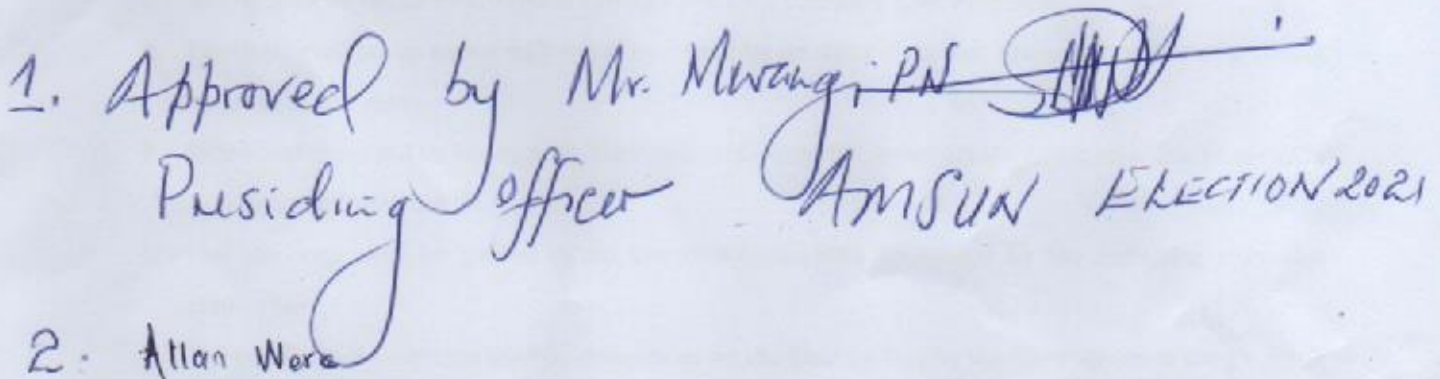 1. Approved by Mr. Mwangi PN
Presiding Officer AMSUN ELECTION 2021
2. Allan Were